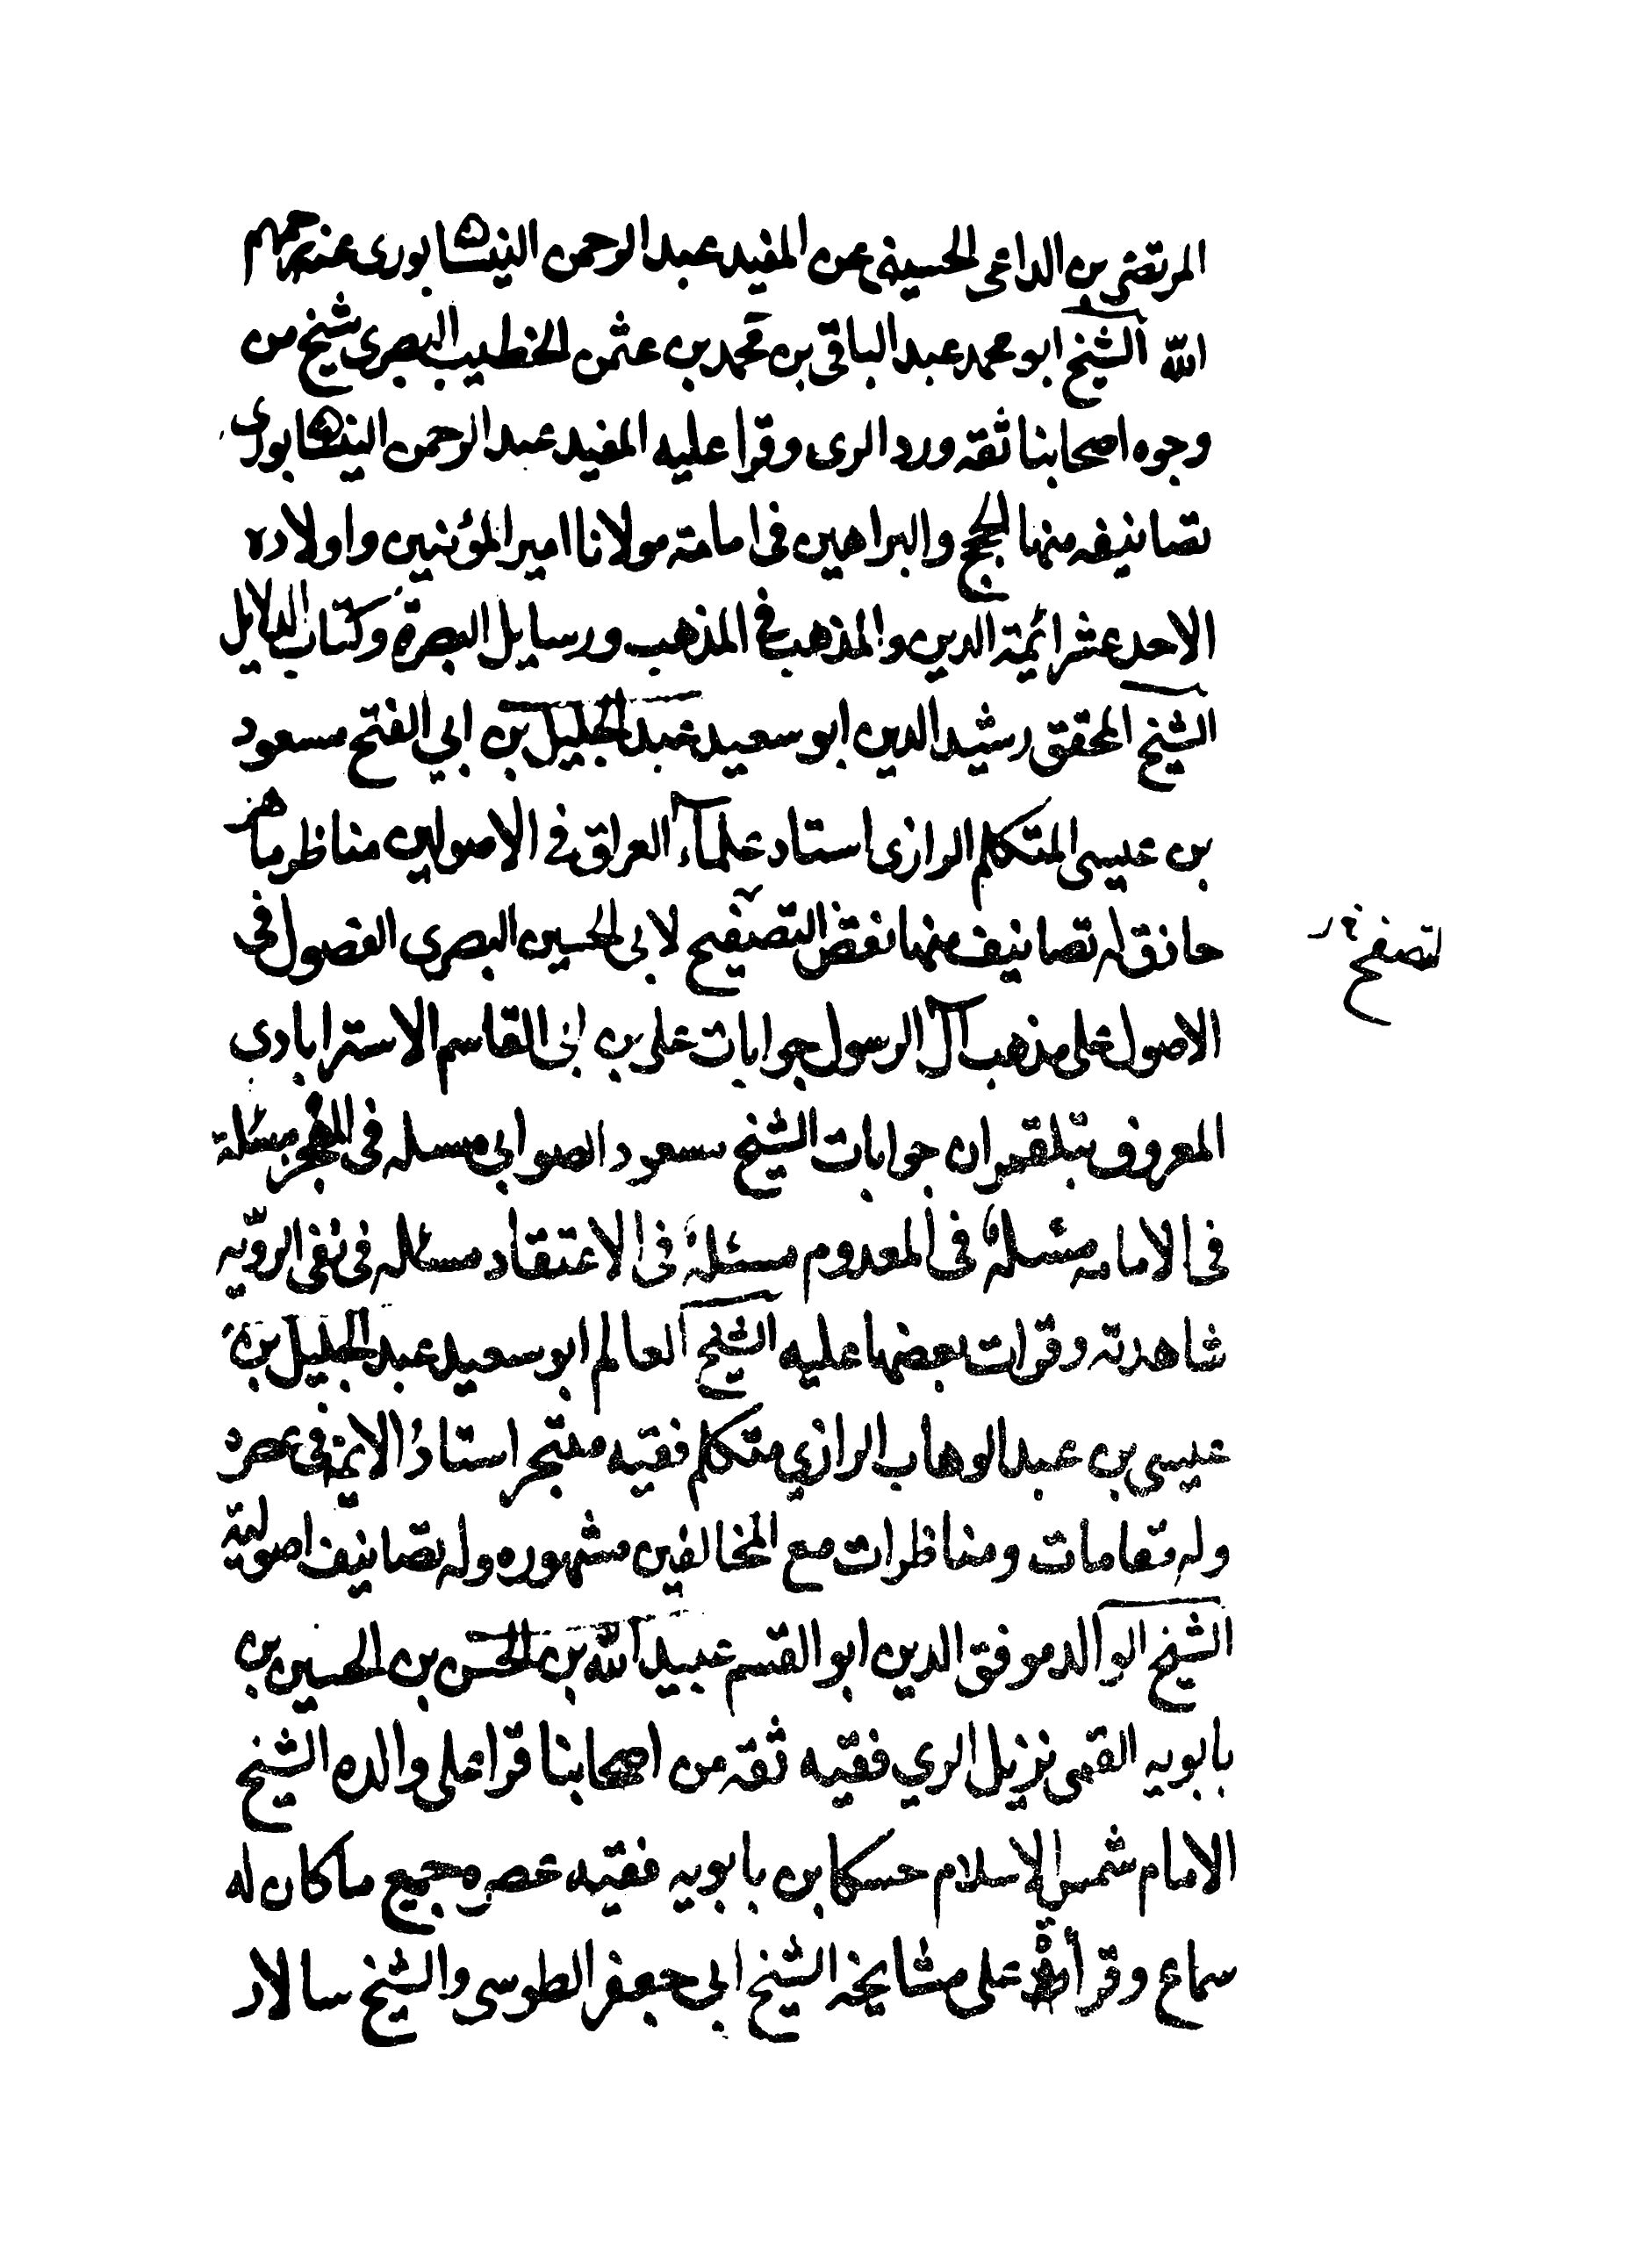 المرتضى بن الداعى الحسينى عن المفيد عبد الرحمن النيشابورى عنه رحمهم
الله الشيخ ابو محمد عبد الباقى بن محمد بن عثمن الخطيب البصرى شيخ من
وجوه اصحابنا ثقه ورد الرى وقرا عليه المفيد عبد الرحمن النيشابورى
تصانيفه منها الحجج والبراهين فى امامة مولانا امير المؤمنين واولاده
الاحد عشر ائمة الدين والمذهب فى المذهب ورسايل البصرة وكتاب الدلايل
الشيخ المحقق رشيد الدين ابو سعيد عبد الجليل بن ابي الفتح مسعود
بن عيسى المتكلم الرازى استاد علماء العراق فى الاصولين مناظر ماهر
حاذق له تصانيف منها نقض التصفيح لابى الحسين البصرى الفصول فى
لتصفح
الاصول على مذهب آل الرسول جوابات على بن ابى القاسم الاسترابادى
المعروف ببلقمران جوابات الشيخ مسعود الصوابى مسله فى المعجز مسئلة
فى الامامه مسئلة فى المعدوم مسئلة فى الاعتقاد مسئله فى نفى الرويه
شاهدته وقرات بعضها عليه الشيخ العالم ابو سعيد عبد الجليل بن
عيسى بن عبد الوهاب الرازي متكلم فقيه متبحر استاد الائمة فى عصره
وله مقامات ومناظرات مع المخالفين مشهوره وله تصانيف اصولية
الشيخ الوالد موفق الدين ابو القسم عبيد الله بن الحسن بن الحسين بن
بابويه القمى نزيل الري فقيه ثقه من اصحابنا قرا على والده الشيخ
الامام شمس الاسلام حسكا بن بابويه فقيه عصره جميع ما كان له
سماع وقرأة على مشايخه الشيخ ابي جعفر الطوسى والشيخ سالار